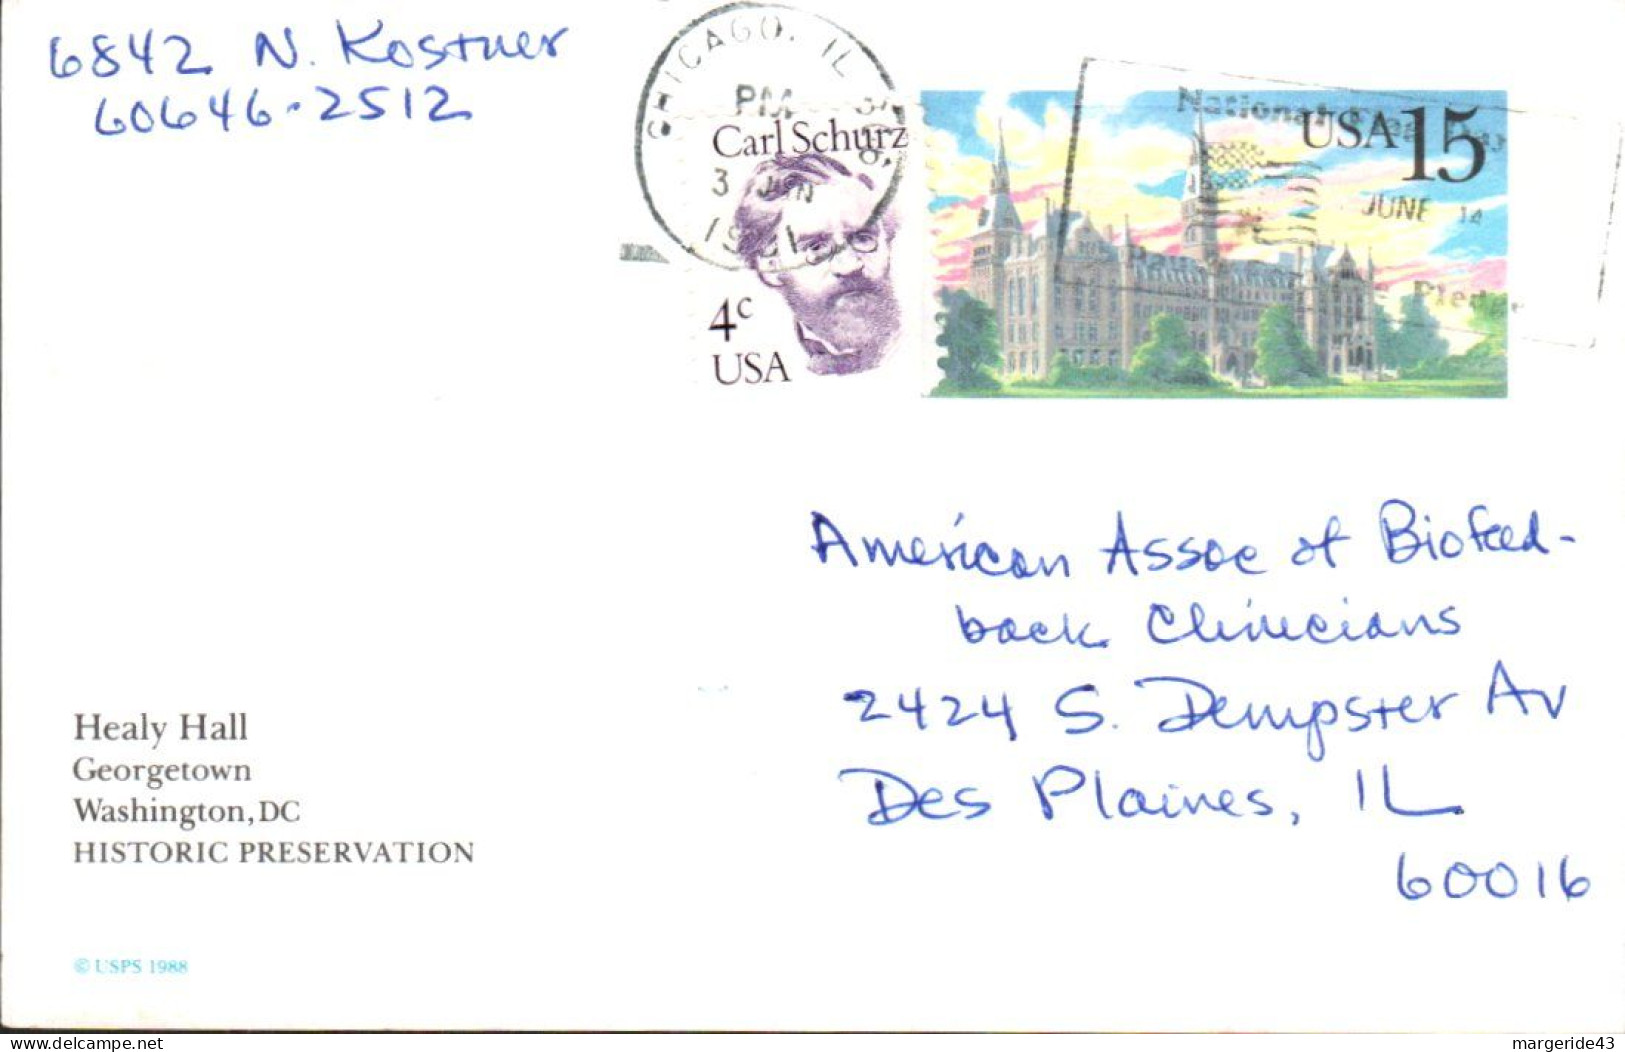 6842 N. Kostner
60646-2512
CHICAGO, IL
PM
3 JUN
Carl Schurz
4c
USA
USA 15
National Flag Day
JUNE 14
American Assoc of Biofeed-
back Clinicians
2424 S. Dempster Av
Des Plaines, IL
60016
Healy Hall
Georgetown
Washington, DC
HISTORIC PRESERVATION
© USPS 1988
delcampe.net
margeride43